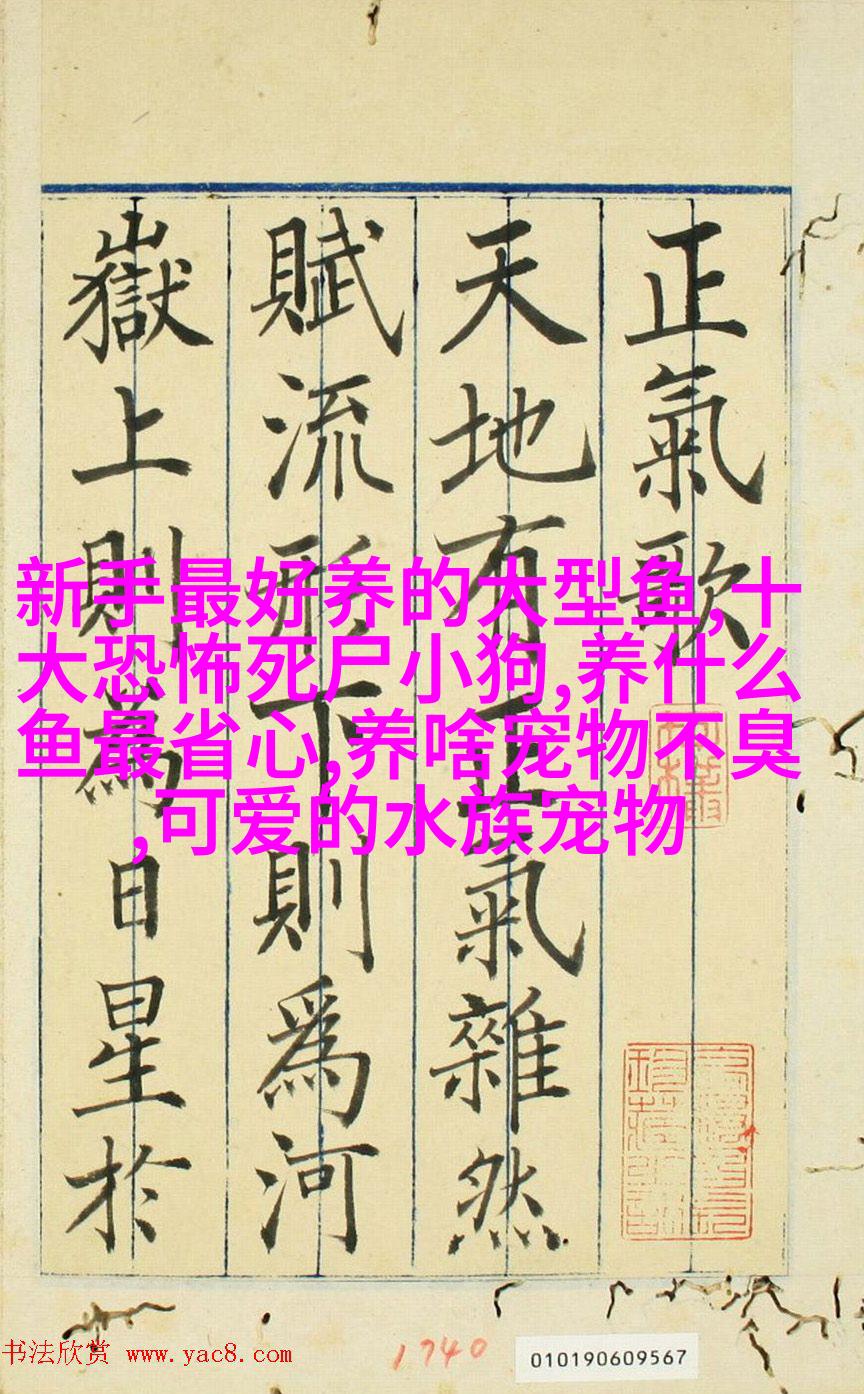 正氣歌
天地有正氣雜然
賦流形下則為河
嶽上則為日星於
新手最好养的大型鱼,十
大恐怖死尸小狗,养什么
鱼最省心,养啥宠物不臭
,可爱的水族宠物
书法欣赏 www.yac8.com
1740
010190609567